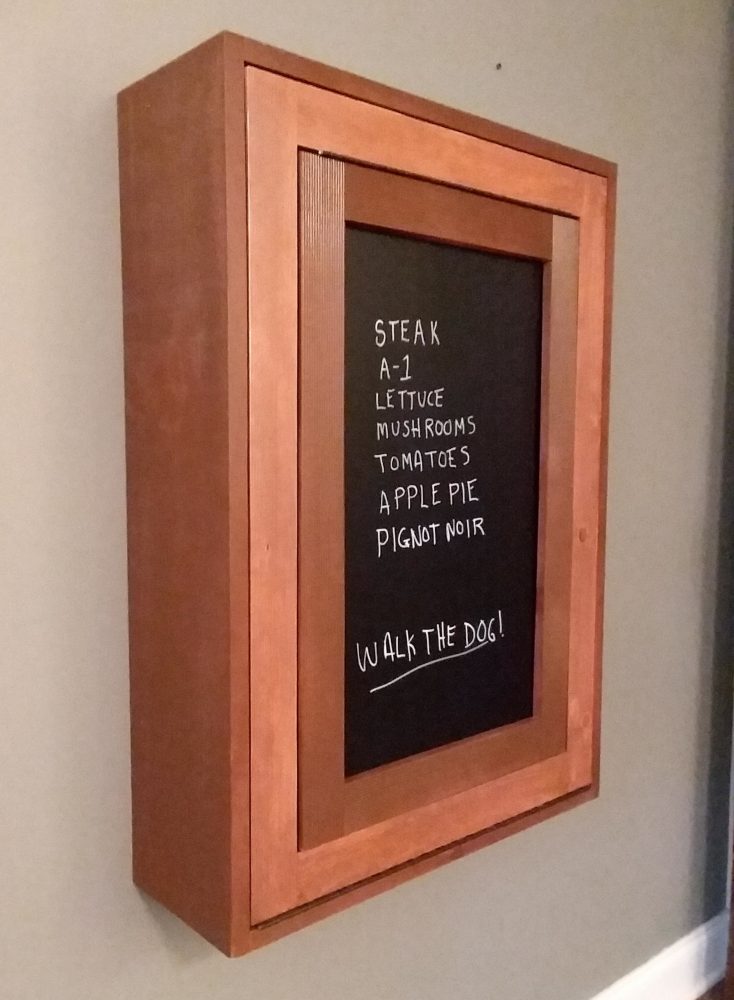 STEAK
A-1
LETTUCE
MUSHROOMS
TOMATOES
APPLE PIE
PIGNOT NOIR
WALK THE DOG!